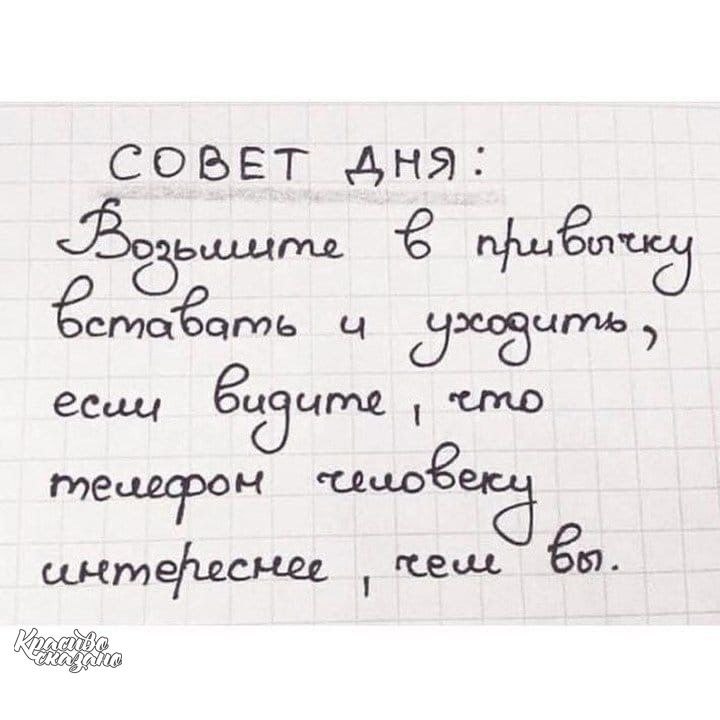 СОВЕТ ДНЯ:
Возьмите в привычку
вставать и уходить,
если видите, что
телефон человеку
интереснее, чем вы.
Красиво
сказано